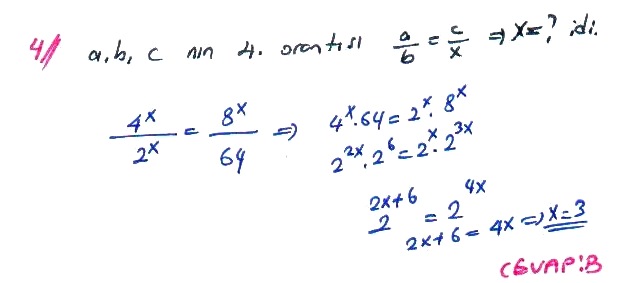 4// a,b, c nin 4. orantısı a/b = c/x ⇒ x=? idi.
4^x/2^x = 8^x/64 ⇒ 4^x.64 = 2^x. 8^x
2^2x. 2^6 = 2^x. 2^3x
2^2x+6 = 2^4x
2x+6 = 4x ⇒ x=3
CEVAP:B